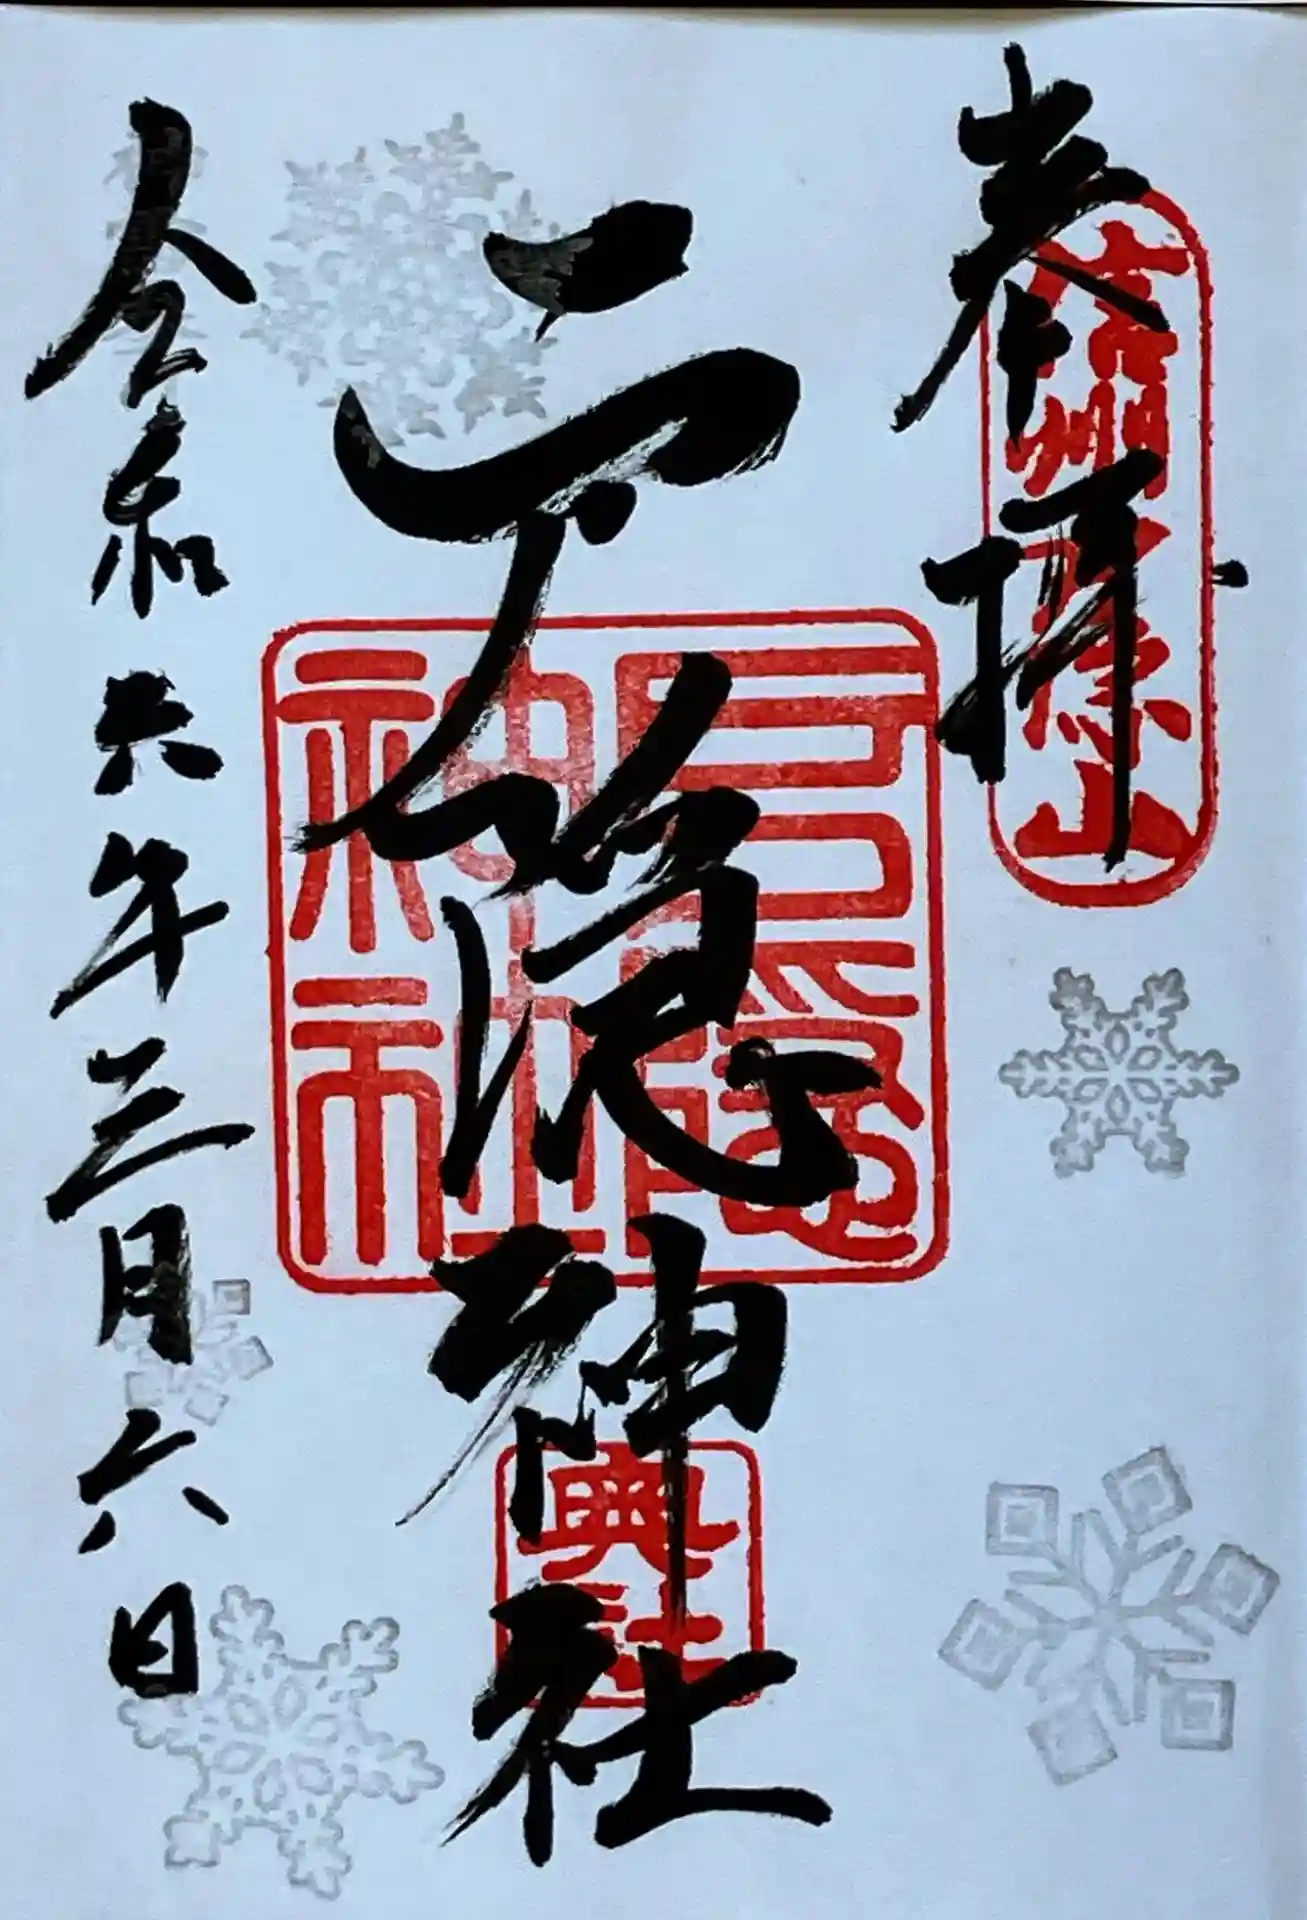 奉拝
信州戸隠山
戸隠神社
戸隠
神社
奥社
令和六年三月六日